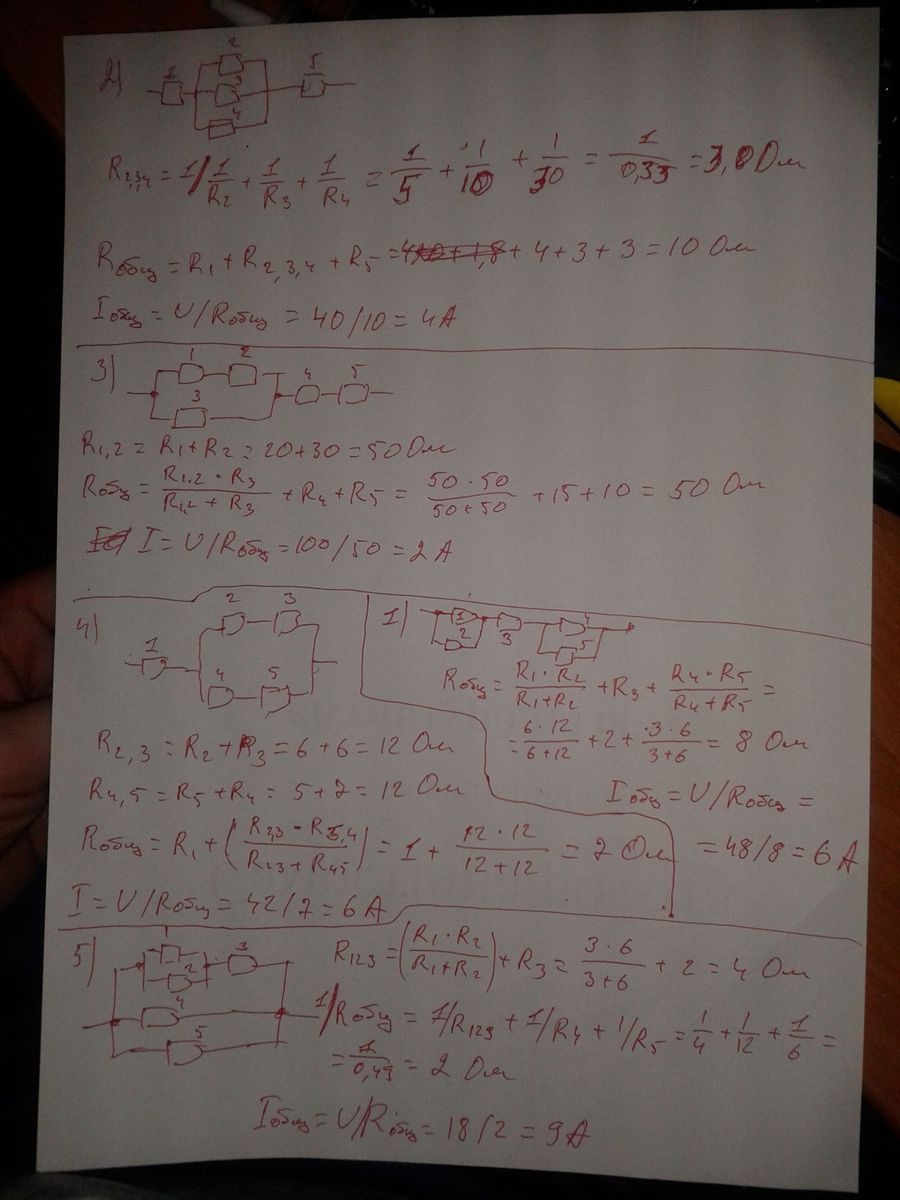 2) 1 2 3 4 5
R2,3,4 = 1/ 1/R2 + 1/R3 + 1/R4 = 1/5 + 1/10 + 1/30 = 1/0,33 = 3,0 Ом
Rобщ = R1 + R2,3,4 + R5 = + 4 + 3 + 3 = 10 Ом
Iобщ = U/Rобщ = 40/10 = 4А
3) 1 2 3 4 5
R1,2 = R1 + R2 = 20+30 = 50 Ом
Rобщ = R1,2 · R3 / R1,2 + R3 + R4 + R5 = 50 · 50 / 50+50 + 15 + 10 = 50 Ом
I = U/Rобщ = 100/50 = 2 А
4) 1 2 3 4 5
R2,3 = R2 + R3 = 6+6 = 12 Ом
R4,5 = R5 + R4 = 5+7 = 12 Ом
Rобщ = R1 + (R2,3 · R5,4 / R23 + R45) = 1 + 12 · 12 / 12+12 = 7 Ом
I = U/Rобщ = 42/7 = 6 А
1) 1 2 3 4 5
Rобщ = R1 · R2 / R1+R2 + R3 + R4 · R5 / R4+R5 =
= 6 · 12 / 6+12 + 2 + 3 · 6 / 3+6 = 8 Ом
Iобщ = U/Rобщ =
= 48/8 = 6 А
5) 1 2 3 4 5
R123 = (R1 · R2 / R1+R2) + R3 = 3 · 6 / 3+6 + 2 = 4 Ом
1/Rобщ = 1/R123 + 1/R4 + 1/R5 = 1/4 + 1/12 + 1/6 =
= 1/0,49 = 2 Ом
Iобщ = U/Rобщ = 18/2 = 9А